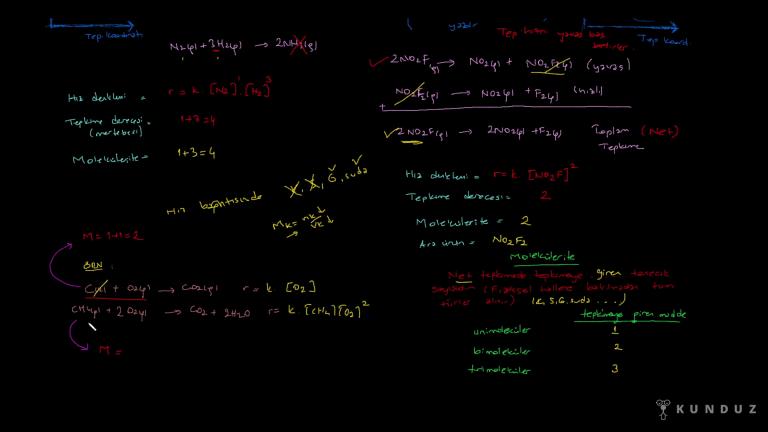 Tep. koordinatı
N₂(g) + 3H₂(g) → 2NH₃(g)
Hız denklemi = r = k [N₂]¹ [H₂]³
Tepkime derecesi = 1+3=4
(mertebesi)
Molekülerite = 1+3=4
Hız bağıntısında X, X, G, suda
Mk = nk↓ / Vk↓
M = 1+1 = 2
ÖRN:
C(k) + O₂(g) → CO₂(g) r = k [O₂]
CH₄(g) + 2O₂(g) → CO₂ + 2H₂O r = k [CH₄][O₂]²
M =
yavaş
Tep. hızını yavaş bas. belirler.
Tep. koord.
2NO₂F(g) → NO₂(g) + NO₂F₂(g) (yavaş)
NO₂F₂(g) → NO₂(g) + F₂(g) (hızlı)
+
2NO₂F(g) → 2NO₂(g) + F₂(g) Toplam (Net)
Tepkime
Hız denklemi = r = k [NO₂F]²
Tepkime derecesi = 2
Molekülerite = 2
Ara ürün = NO₂F₂
Molekülerite
Net tepkimede tepkimeye giren tanecik
sayısıdır (Fiziksel hallere bakılmadan tüm
türler alınır) (K, S, G, suda ...)
tepkimeye giren madde
unimoleküler 1
bimoleküler 2
trimoleküler 3
KUNDUZ